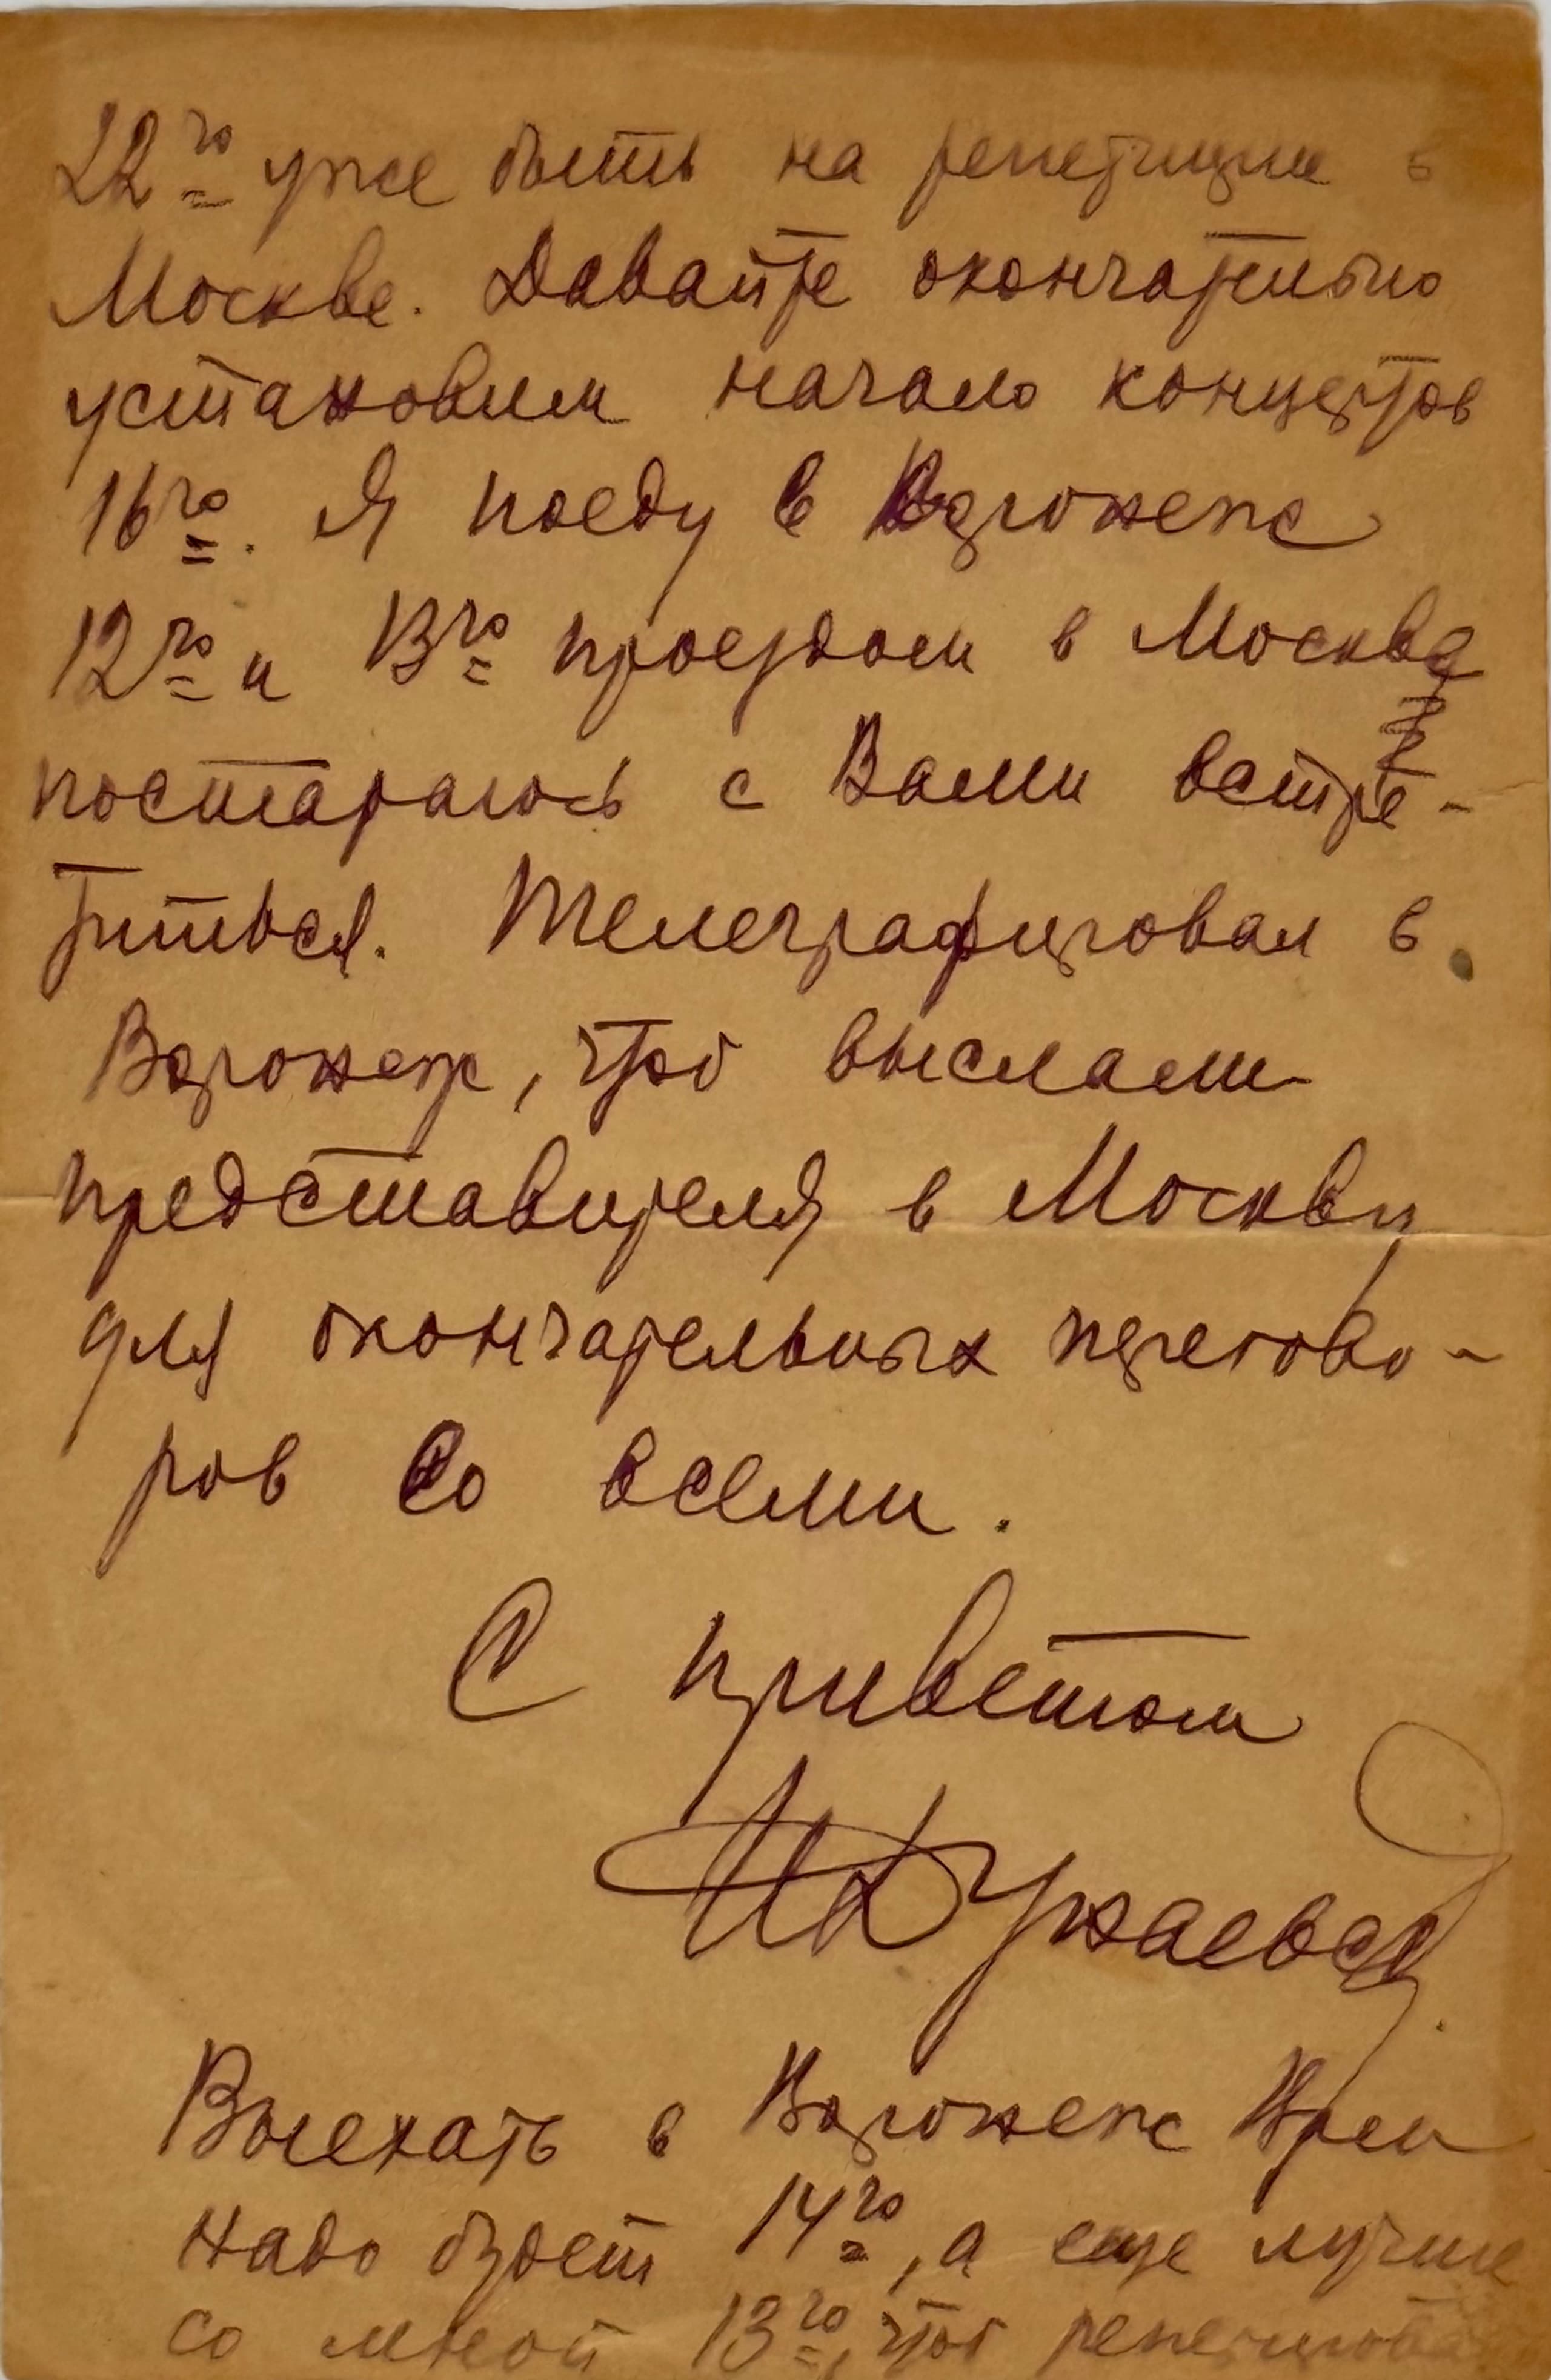 22го уже быть на репетиции в
Москве. Давайте окончательно
установим начало концертов
16го. Я поеду в Воронеж
12го и 13го проездом в Москве
постараюсь с Вами встре-
титься. Телеграфировал в
Воронеж, чтоб выслали
представителя в Москву
для окончательных перегово-
ров со всеми.
С приветом
И Дунаевск
Выехать в Воронеж Вам
надо будет 14го, а еще лучше
со мной 13го, чтоб